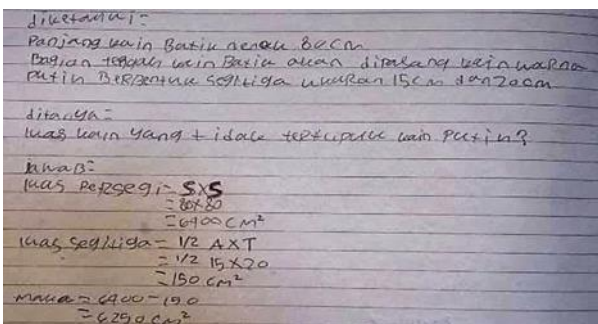 diketahui:
Panjang kain Batik nenek 80cm
Bagian tengah kain Batik akan dipasang kain warna
putih Berbentuk segitiga ukuran 15cm dan 20cm
ditanya:
luas kain yang tidak tertutup kain putih?
Jawab:
luas Persegi = S×S
= 80×80
= 6400 cm²
luas segitiga = 1/2 A×T
= 1/2 15×20
= 150 cm²
maka = 6400 - 150
= 6250 cm²